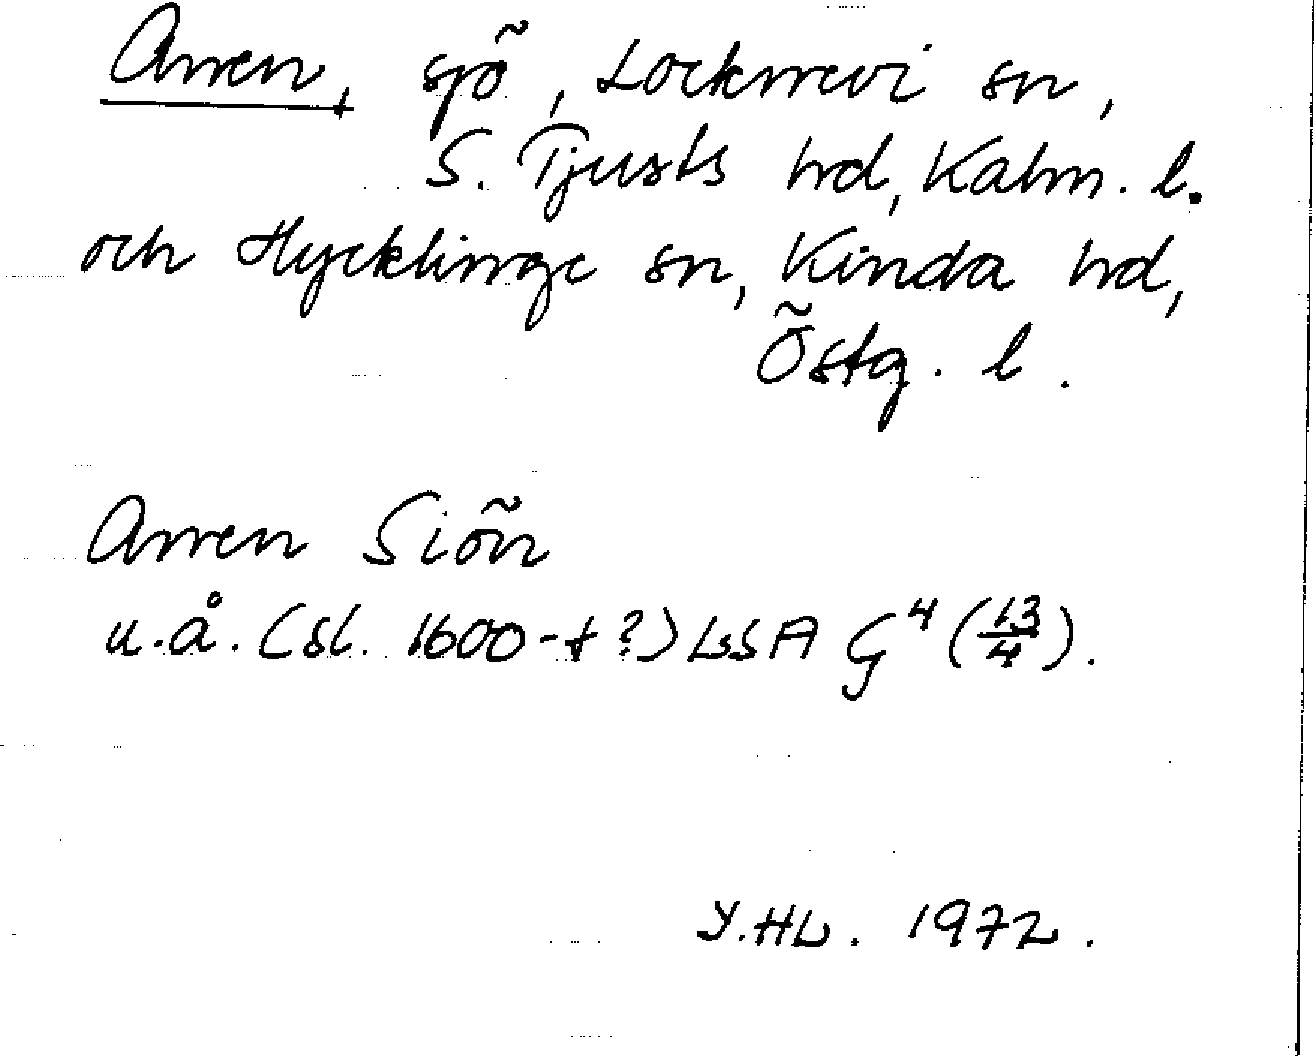 Arren, sjö, Locknevi sn,
S. Tjusts hd, Kalm. l.
och Hycklinge sn, Kinda hd,
Östg. l.
Arren Siön
u.å. (sl. 1600-t?) LSA G⁴ (13/4).
Y.HL. 1972.